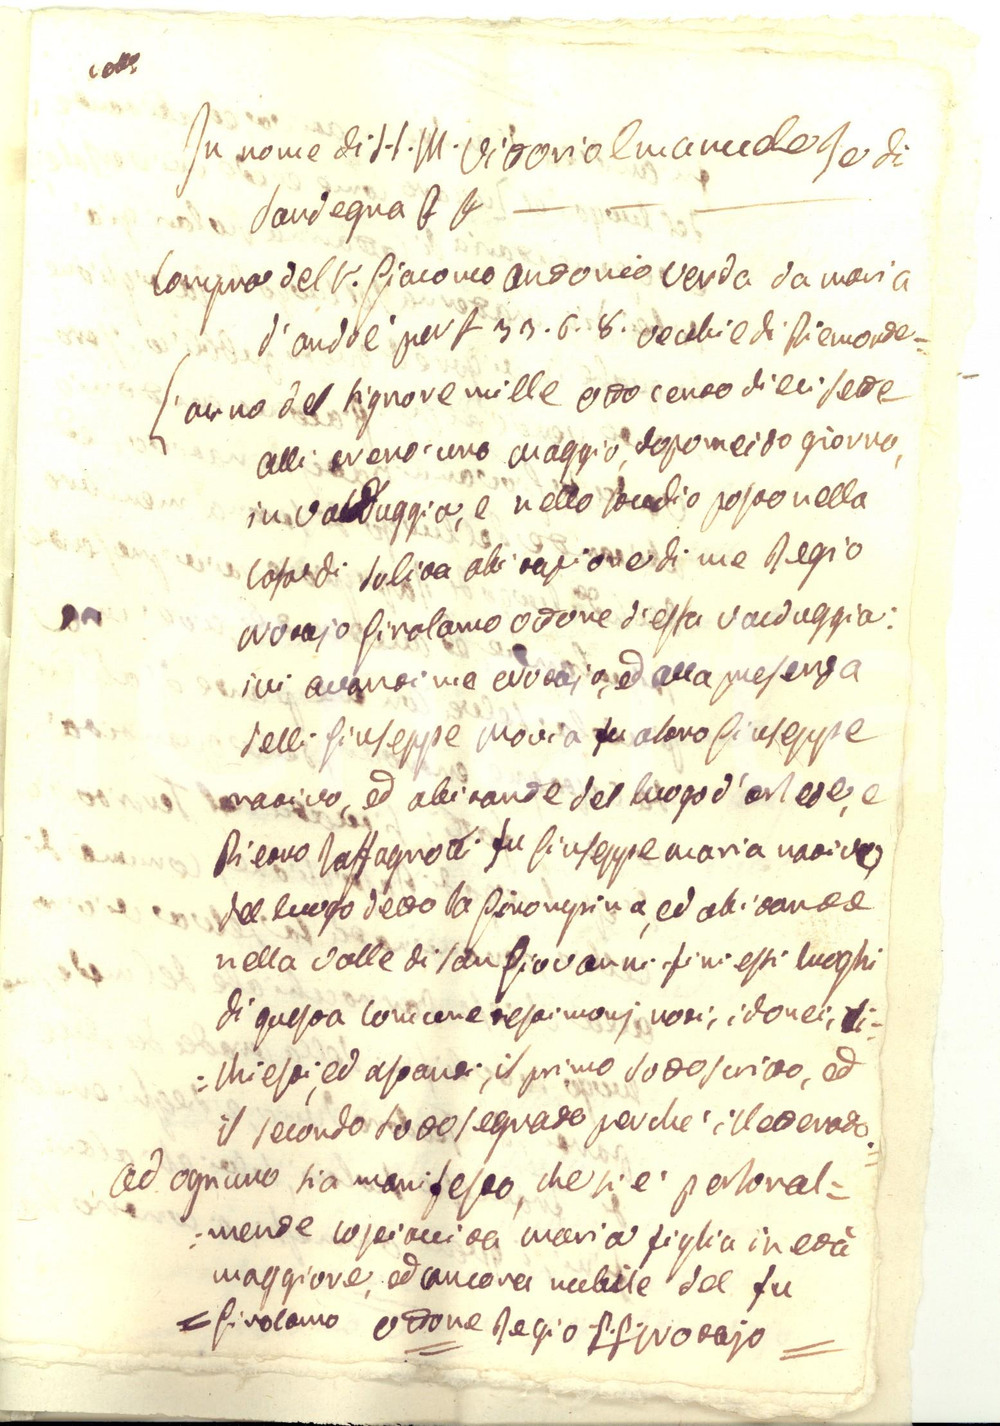 In nome di S. M. Vittorio Emanuele Re di
Sardegna
Compra del S.r Giacomo Antonio Verda da Maria
d'André per £ 33.6.8. vecchie di Piemonte=
L'anno del Signore mille otto cento dieci sette
alli ventiuno maggio, dopo mezzo giorno,
in Valduggia, e nello studio posto nella
casa di solita abitazione di me Regio
Notajo Girolamo Ottone d'essa Valduggia:
ivi avanti me Notajo, ed alla presenza
delli Giuseppe Movia fu altro Giuseppe
nativo, ed abitante del luogo d'Orlede, e
Pietro Raffagnoti fu Giuseppe Maria nativo
del luogo detto la ed abitante
nella Valle di San Giovanni, fini essi luoghi
di questa Comune testimonj noti, idonei, ri=
=chiesti, ed astanti, il primo sottoscritto, ed
il secondo sottosegnato perche' illetterato.=
Ad ognuno sia manifesto, che si e' personal=
=mente costituita Maria figlia in età
maggiore, ed ancora nubile del fu
=Girolamo Ottone Regio Notajo=